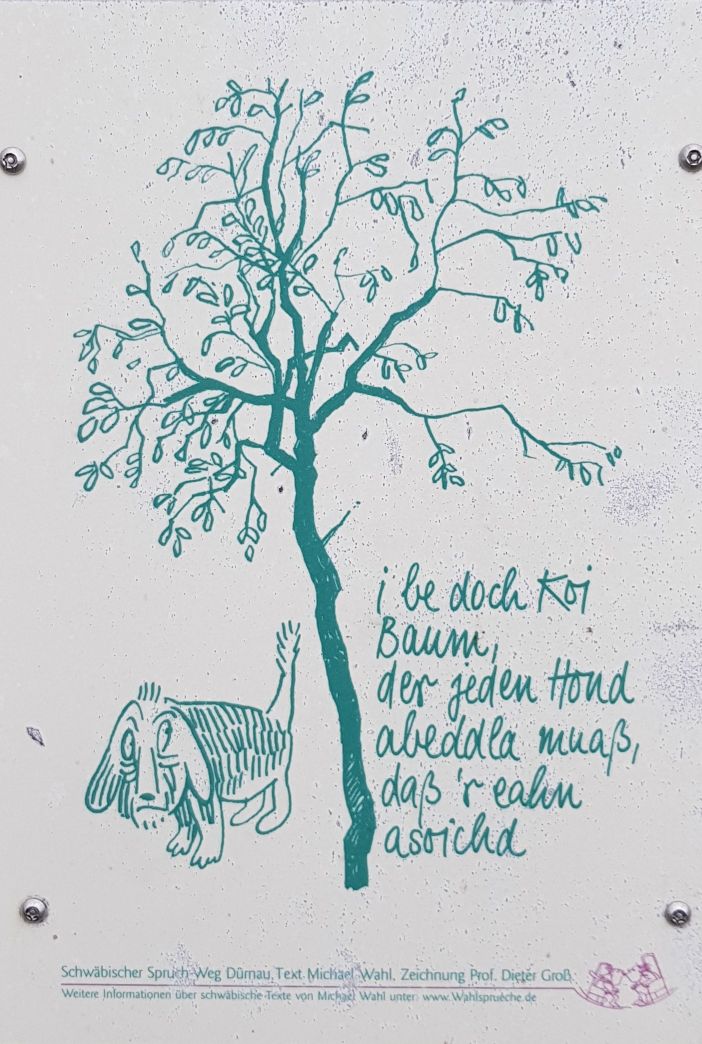 i be doch koi
Baum,
der jeden Hond
abeddla muaß,
daß 'r eahn
asoichd
Schwäbischer Spruch-Weg Dürnau, Text Michael Wahl, Zeichnung Prof. Dieter Groß
Weitere Informationen über schwäbische Texte von Michael Wahl unter: www.Wahlsprueche.de